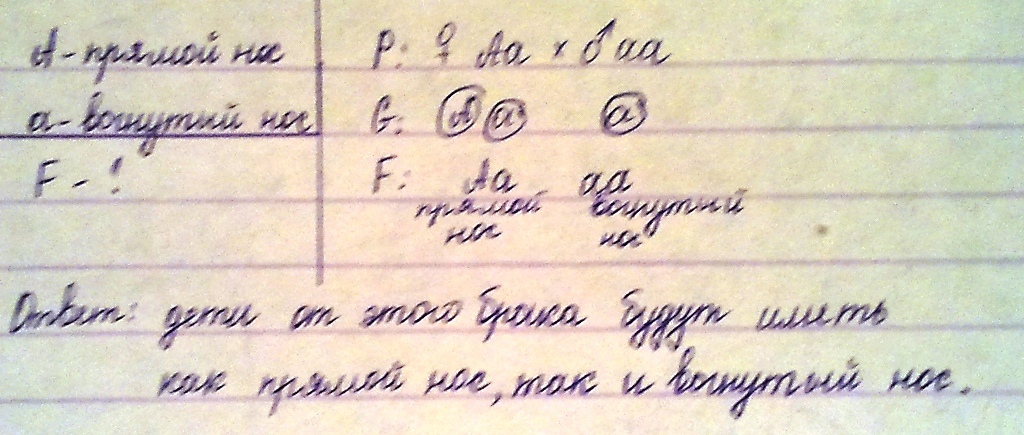 A - прямой нос
a - вогнутый нос
F - ?
P: ♀ Aa × ♂ aa
G: A a a
F: Aa aa
прямой вогнутый
нос нос
Ответ: дети от этого брака будут иметь
как прямой нос, так и вогнутый нос.